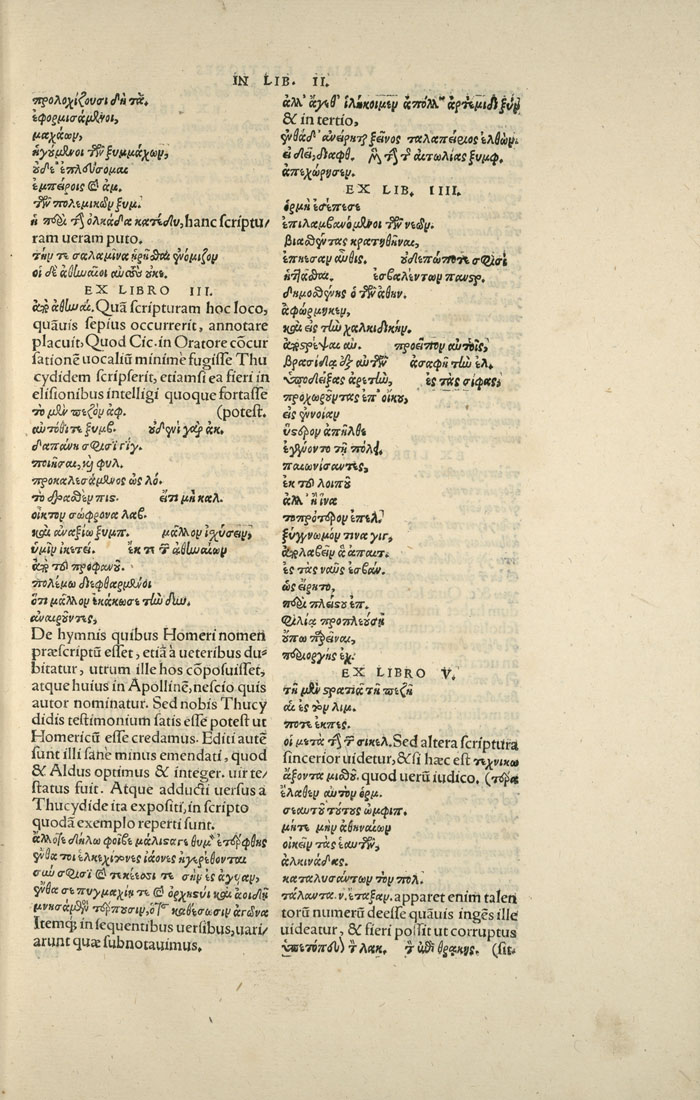 IN LIB. II.
προλοχίζουσι δὴ τὰ.
ἐφορμισάμενοι,
μαχάων,
ἡγούμενοι τῶν ξυμμάχων,
οὐδὲ ἐπλεύσομαι
ἐμπείροις καὶ ἀμ.
τῶν πολεμικῶν ξυμ.
ἢ περὶ τῆς ὁλκάδα κατέδυ, hanc scriptu/
ram ueram puto.
τήν τε σαλαμῖνα ᾑρῆσθαι ἐνόμιζον
οἱ δὲ ἀθηναῖοι
EX LIBRO III.
Quā scripturam hoc loco,
quāuis sepius occurrerit, annotare
placuit, Quod Cic. in Oratore cōcur
sationē uocaliū minime fugisse Thu
cydidem scripserit, etiamsi ea fieri in
elisionibus intelligi quoque fortasse
τὸ μὲν πεζὸν ἀφ. (potest.
οὐδενὶ γὰρ ἀκ.
δαπάνῃ σφίσι
ποιῆσαι, καὶ φυλ.
προκαλεσάμενος ὡς λό.
τὸ δρασθὲν πις. ἔτι μὴ καλ.
οἶκτον σώφρονα λαβ.
καὶ ἀναξίῳ ξυμπ. μᾶλλον ἰσχύσειν,
ὑμῖν ἱκετεύ. ἔκ τε τῶν ἀθηναίων
ἀπὸ τοῦ προφανοῦ.
πολέμῳ διεφθαρμένοι
ὅτι μᾶλλον ἐκάκωσε τὴν δυν.
ἀναιροῦντες,
De hymnis quibus Homeri nomen
præscriptū esset, etiā a ueteribus du-
bitatur, utrum ille hos cōposuisset,
atque huius in Apollinē, nescio quis
autor nominatur. Sed nobis Thucy
didis testimonium satis esse potest ut
Homericū esse credamus. Editi autē
sunt illi sane minus emendati, quod
& Aldus optimus & integer. uir te/
status fuit. Atque adducti uersus a
Thucydide ita expositi, in scripto
quodā exemplo reperti sunt.
ἄλλοτε δήλῳ φοῖβε μάλιστά γε θυμὸν ἐτέρφθης
ἔνθα τοι ἑλκεχίτωνες ἰάονες ἠγερέθονται
σὺν σφίσι καὶ τεκέεσσι τε σὴν ἐς ἀγυιάν,
ἔνθα σε πυγμαχίῃ τε καὶ ὀρχηστυῖ καὶ ἀοιδῇ
μνησάμενοι τέρπουσιν, ὅταν καθέσωσιν ἀγῶνα
Itemq; in sequentibus uersibus, uari/
arunt quæ subnotauimus.
ἀλλ' ἄγεθ' ἱλήκοιμεν ἀπόλλων ἀρτέμιδι ξὺν
& in tertio,
ἐνθάδ' ἀνείρηται ξεῖνος ταλαπείριος ἐλθὼν.
εἰ δεῖ, διαφθ. αἰτωλίας ξυμφ.
ἀπεχώρησεν.
EX LIB. IIII.
ὁρμὴ ἐσέπεσε
ἐπιλαμβανόμενοι τῶν νεῶν.
βιασθέντας κρατηθῆναι,
ἐπῄεσαν αὖθις. οὐδεπώποτε σφίσι
ἡττᾶσθαι. ἐσβαλέντων πανσρ.
δημοσθένης ὁ τῶν ἀθην.
ἀφώρμηκεν,
καὶ εἰς τὴν χαλκιδικήν.
ἀποστρέψαι αὐ. προεῖπον αὐτοῖς,
ἀσαφῆ τὴν ἑλ.
ὑποδείξας ἀρετὴν, ἐς τὰς σίφας,
προχωροῦντας ἐπ' οἴκου,
εἰς εὔνοιαν
ὕστερον ἀπῆλθε
ἐγγύοντο τῇ πόλει.
παιωνίσαντες,
ἐκ τοῦ λοιποῦ
ἀλλ' ἢ ἵνα
τὸ πρότερον ἐπελ.
ξύγγνωμόν τι να γιγ,
ἀπολαβεῖν ἃ ἀπαιτ.
ἐς τὰς ναῦς ἐσβάν.
ὡς εἴρητο,
περὶ πλείστου ἐπ.
φιλίᾳ προπλεύσῃ
οὔπω παρεῖναι,
περιοργὴς ἐχ.
EX LIBRO V.
τῇ μὲν στρατιᾷ τῇ πεζῇ
αἱ ἐς τὸν λιμ.
ποτε ἐκπες.
οἱ μετὰ τῆς τῶν σικελ. Sed altera scriptura
sincerior uidetur, & si hæc est τεχνικω
ἄξοντα μισθοῦ. quod uerū iudico. (τέρα
ἔλαθεν αὐτὸν ὁρμ.
σε αυτοῦ τούτους ὠμφιπ.
μήτε μὴν ἀθηναίων
οἰκεῖν τὰς ἑαυτῶν,
ἀλκινάδας.
καταλυσάντων τὸν πολ.
τάλαντα. ν. ἔταξαν. apparet enim talen
torū numerū deesse quāuis ingēs ille
uideatur, & fieri possit ut corruptus
ὑπετόπουν τῶν λακ. τῶν ἐπὶ θρᾴκης. (sit.